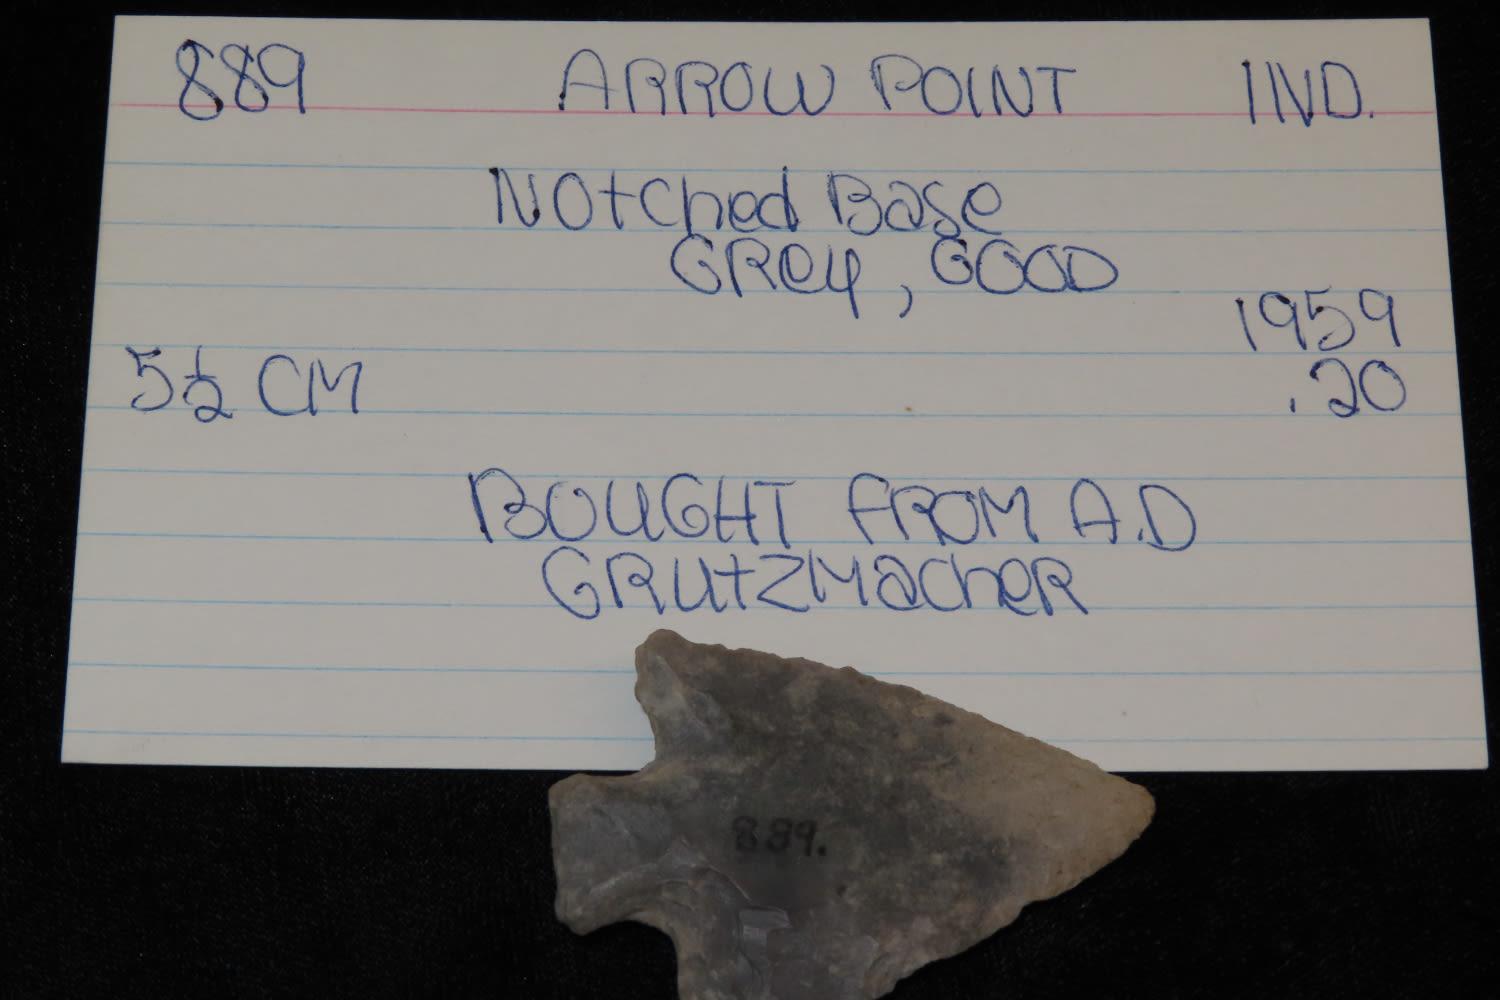 889 ARROW POINT IND.
Notched Base
GRey, GOOD
1959
5½ CM .20
BOUGHT FROM A.D
GRUtZMacheR
889.